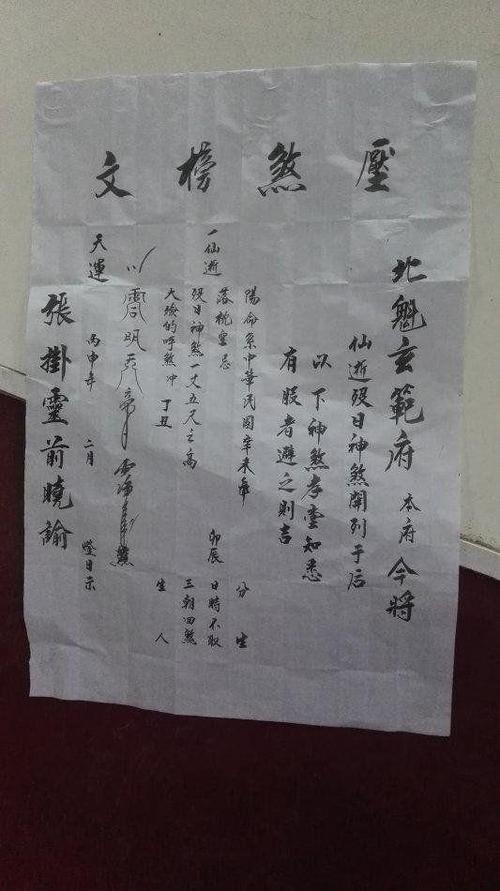 壓煞榜文
北魁玄範府 本府 今將
仙逝歿日神煞開列于后
以下神煞孝堂知悉
有服者避之則吉
陽命系中華民國辛未年 分生
落枕空忌 卯辰 日時不取
一仙逝歿日神煞一丈五尺之高 三朝回煞
大殮的呼煞冲 丁丑 生人
天運 丙申年 二月 日示
張掛靈前曉諭